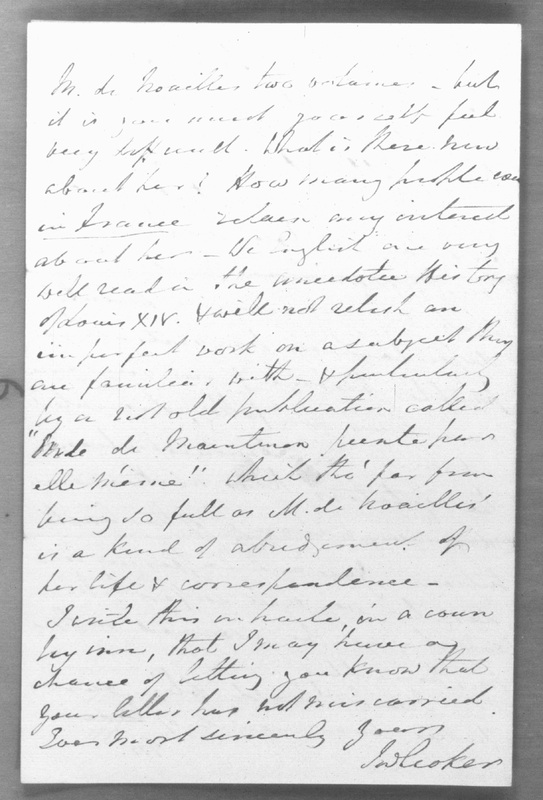 M. de Noailles two volumes – but
it is you must yourself feel
very difficult. What is there new
about her? How many people even
in France retain any interest
about her – We English are very
well read in the anecdotic History
of Louis XIV. & will not relish an
imperfect work on a subject they
are familiar with – & particularly
by a not old publication called
"Mde de Maintenon peinte par
elle même". Which tho' far from
being so full as M. de Noailles'
is a kind of abridgement of
her life & correspondence –
I write this in haste, in a coun
try inn, that I may have a
chance of letting you know that
your letter has not miscarried.
Ever most sincerely yours
JWCroker